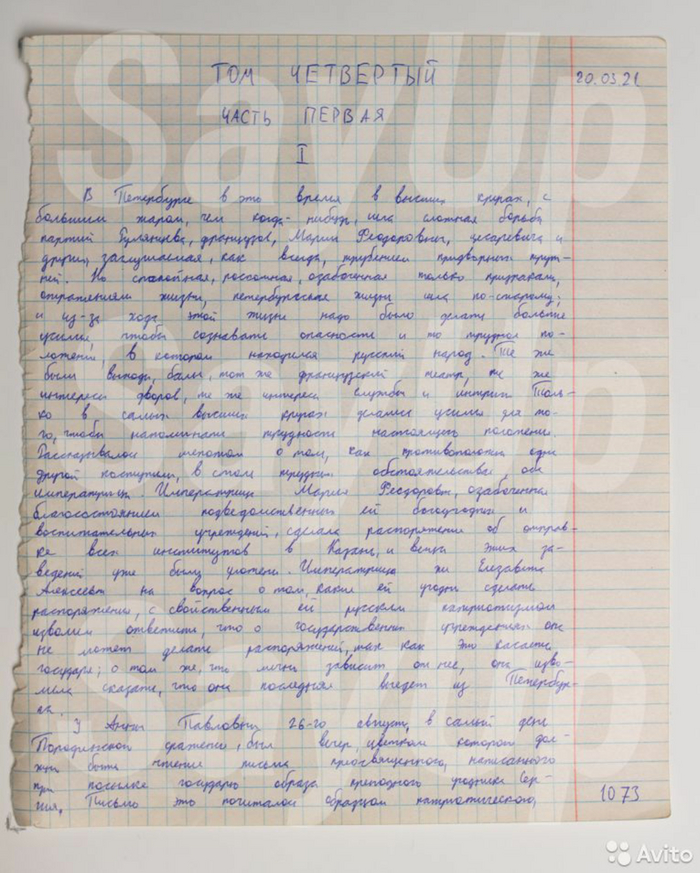 ТОМ ЧЕТВЕРТЫЙ
20.03.21
ЧАСТЬ ПЕРВАЯ
I
В Петербурге в это время в высших кругах, с
большим жаром, чем когда-нибудь, шла сложная борьба
партий Румянцева, французов, Марии Феодоровны, цесаревича и
других, заглушаемая, как всегда, трубением придворных трут-
ней. Но спокойная, роскошная, озабоченная только призраками,
отражениями жизни, петербургская жизнь шла по-старому;
и из-за хода этой жизни надо было делать большие
усилия, чтобы сознавать опасность и то трудное по-
ложение, в котором находился русский народ. Те же
были выходы, балы, тот же французский театр, те же
интересы дворов, те же интересы службы и интриги. Толь-
ко в самых высших кругах делались усилия для то-
го, чтобы напоминать трудность настоящего положения.
Рассказывалось шепотом о том, как противоположно одна
другой поступили, в столь трудных обстоятельствах, обе
императрицы. Императрица Мария Феодоровна, озабоченная
благосостоянием подведомственных ей богоугодных и
воспитательных учреждений, сделала распоряжение об отправ-
ке всех институтов в Казань, и вещи этих за-
ведений уже были уложены. Императрица же Елизавета
Алексеевна на вопрос о том, какие ей угодно сделать
распоряжения, с свойственным ей русским патриотизмом
изволила ответить, что о государственных учреждениях она
не может делать распоряжений, так как это касается
государя; о том же, что лично зависит от нее, она изво-
лила сказать, что она последняя выедет из Петербур-
га.
У Анны Павловны 26-го августа, в самый день
Бородинского сражения, был вечер, цветком которого дол-
жно быть чтение письма преосвященного, написанного
при посылке государю образа преподобного угодника Сер-
гия. Письмо это почиталось образцом патриотического,
1073
SayUp
SayUp
SayUp
Avito